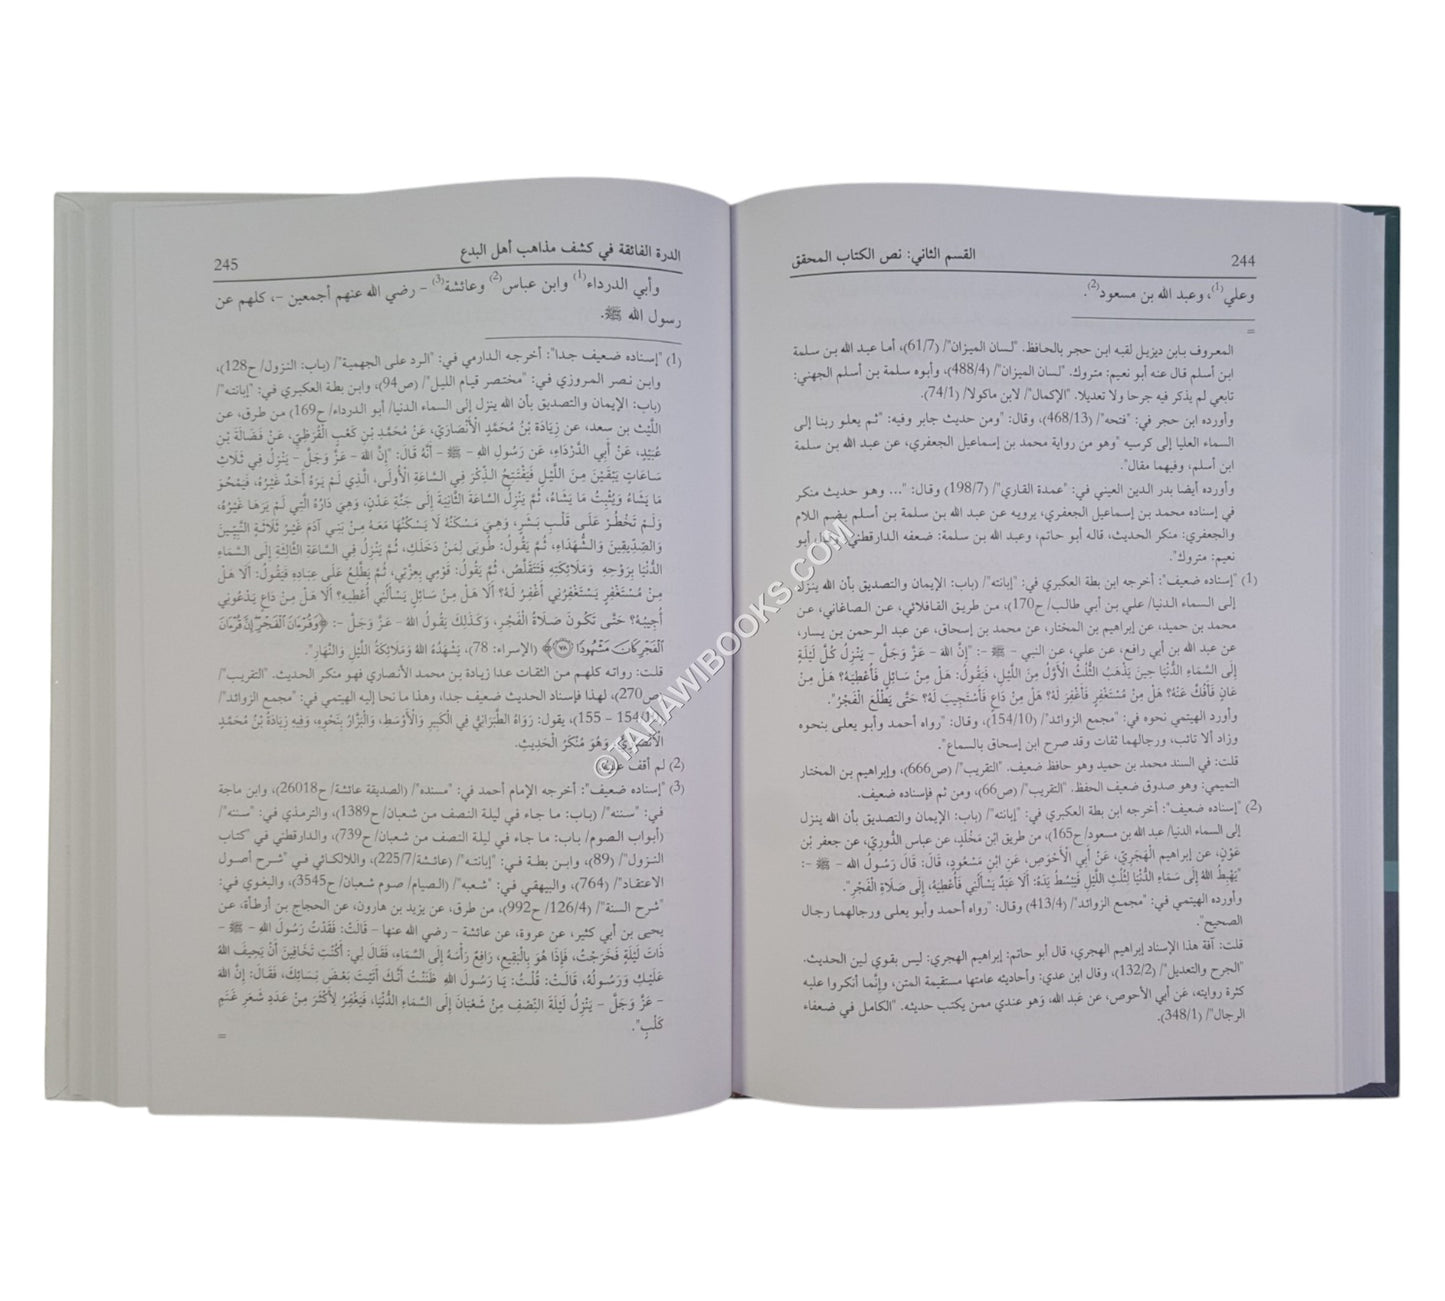 244
القسم الثاني: نص الكتاب المحقق
وعلي(1)، وعبد الله بن مسعود(2).
=
المعروف بابن ديزيل لقبه ابن حجر بالحافظ. "لسان الميزان"/ (61/7)، أما عبد الله بن سلمة
ابن أسلم قال عنه أبو نعيم: متروك. "لسان الميزان"/ (488/4)، وأبوه سلمة بن أسلم الجهني:
تابعي لم يذكر فيه جرحا ولا تعديلا. "الإكمال"/ لابن ماكولا/ (74/1).
وأورده ابن حجر في: "فتحه"/ (468/13)، وقال: "ومن حديث جابر وفيه: "ثم يعلو ربنا إلى
السماء العليا إلى كرسيه "وهو من رواية محمد بن إسماعيل الجعفري، عن عبد الله بن سلمة
ابن أسلم، وفيهما مقال".
وأورده أيضا بدر الدين العيني في: "عمدة القاري"/ (198/7) وقال: "... وهو حديث منكر
في إسناده محمد بن إسماعيل الجعفري، يرويه عن عبد الله بن سلمة بن أسلم بضم اللام
والجعفري: منكر الحديث، قاله أبو حاتم، وعبد الله بن سلمة: ضعفه الدارقطني، أبو
نعيم: متروك".
(1) "إسناده ضعيف": أخرجه ابن بطة العكبري في: "إبانته"/ (باب: الإيمان والتصديق بأن الله ينزل
إلى السماء الدنيا/ علي بن أبي طالب/ ح170)، من طريق القافلائي، عن الصاغاني، عن
محمد بن حميد، عن إبراهيم بن المختار، عن محمد بن إسحاق، عن عبد الرحمن بن يسار،
عن عبد الله بن أبي رافع، عن علي، عن النبي – ﷺ –: "إنَّ اللهَ – عَزَّ وَجَلَّ – يَنْزِلُ كُلَّ لَيْلَةٍ
إِلَى السَّمَاءِ الدُّنْيَا حِينَ يَذْهَبُ الثُّلُثُ الْأَوَّلُ مِنَ اللَّيْلِ، فَيَقُولُ: هَلْ مِنْ سَائِلٍ فَأُعْطِيَهُ؟ هَلْ مِنْ
عَانٍ فَأَفُكَّ عَنْهُ؟ هَلْ مِنْ مُسْتَغْفِرٍ فَأَغْفِرَ لَهُ؟ هَلْ مِنْ دَاعٍ فَأَسْتَجِيبَ لَهُ؟ حَتَّى يَطْلُعَ الْفَجْرُ".
وأورد الهيتمي نحوه في: "مجمع الزوائد"/ (154/10)، وقال: "رواه أحمد وأبو يعلى بنحوه
وزاد ألا تائب، ورجالهما ثقات وقد صرح ابن إسحاق بالسماع".
قلت: في السند محمد بن حميد وهو حافظ ضعيف. "التقريب"/ (ص666)، وإبراهيم بن المختار
التميمي: وهو صدوق ضعيف الحفظ. "التقريب"/ (ص66)، ومن ثم فإسناده ضعيف.
(2) "إسناده ضعيف": أخرجه ابن بطة العكبري في: "إبانته"/ (باب: الإيمان والتصديق بأن الله ينزل
إلى السماء الدنيا/ عبد الله بن مسعود/ ح165)، من طريق ابن مَخْلَدٍ، عن عباس الدُّوريِّ، عن جعفر بن
عَوْنٍ، عن إبراهيم الْهَجَرِي، عَنْ أَبِي الْأَحْوَصِ، عَنِ ابْنِ مَسْعُودٍ، قَالَ: قَالَ رَسُولُ اللهِ – ﷺ –:
"يَهْبِطُ اللهُ إِلَى سَمَاءِ الدُّنْيَا لِثُلُثِ اللَّيْلِ فَيَبْسُطُ يَدَهُ: أَلَا عَبْدٌ يَسْأَلُنِي فَأُعْطِيَهُ، إِلَى صَلَاةِ الْفَجْرِ".
وأورده الهيتمي في: "مجمع الزوائد"/ (413/4) وقال: "رواه أحمد وأبو يعلى ورجالهما رجال
الصحيح".
قلت: آفة هذا الإسناد إبراهيم الهجري، قال أبو حاتم: إبراهيم الهجري: ليس بقوي لين الحديث.
"الجرح والتعديل"/ (132/2)، وقال ابن عدي: وأحاديثه عامتها مستقيمة المتن، وإنَّما أنكروا عليه
كثرة روايته، عَن أبي الأحوص، عن عَبد الله، وَهو عندي ممن يكتب حديثه. "الكامل في ضعفاء
الرجال"/ (348/1).
الدرة الفائقة في كشف مذاهب أهل البدع
245
وأبي الدرداء(1) وابن عباس(2) وعائشة(3) – رضي الله عنهم أجمعين –، كلهم عن
رسول الله ﷺ.
(1) "إسناده ضعيف جدا": أخرجه الدارمي في: "الرد على الجهمية"/ (باب: النزول/ ح128)،
وابن نصر المروزي في: "مختصر قيام الليل"/ (ص94)، وابن بطة العكبري في: "إبانته"/
(باب: الإيمان والتصديق بأن الله ينزل إلى السماء الدنيا/ أبو الدرداء/ ح169) من طرق، عن
اللَّيْث بن سعد، عن زِيَادَة بْنُ مُحَمَّدٍ الْأَنْصَارِيّ، عَنْ مُحَمَّدِ بْنِ كَعْبٍ الْقُرَظِيِّ، عَنْ فَضَالَةَ بْنِ
عُبَيْدٍ، عَنْ أَبِي الدَّرْدَاءِ، عَنِ رَسُولِ اللهِ – ﷺ – أَنَّهُ قَالَ: "إنَّ اللهَ – عَزَّ وَجَلَّ – يَنْزِلُ فِي ثَلَاثِ
سَاعَاتٍ يَبْقَيْنَ مِنَ اللَّيْلِ فَيَفْتَتِحُ الذِّكْرَ فِي السَّاعَةِ الْأُولَى، الَّذِي لَمْ يَرَهُ أَحَدٌ غَيْرُهُ، فَيَمْحُوَ
مَا يَشَاءُ وَيُثْبِتُ مَا يَشَاءُ، ثُمَّ يَنْزِلُ السَّاعَةَ الثَّانِيَةَ إِلَى جَنَّةِ عَدْنٍ، وَهِيَ دَارُهُ الَّتِي لَمْ يَرَهَا غَيْرُهُ،
وَلَمْ تَخْطُرْ عَلَى قَلْبِ بَشَرٍ، وَهِيَ مَسْكَنُهُ لَا يَسْكُنُهَا مَعَهُ مِنْ بَنِي آدَمَ غَيْرُ ثَلَاثَةٍ النَّبِيِّينَ
وَالصِّدِّيقِينَ وَالشُّهَدَاءِ، ثُمَّ يَقُولُ: طُوبَى لِمَنْ دَخَلَكِ، ثُمَّ يَنْزِلُ فِي السَّاعَةِ الثَّالِثَةِ إِلَى السَّمَاءِ
الدُّنْيَا بِرُوحِهِ وَمَلَائِكَتِهِ فَتَتَقَلَّصُ، ثُمَّ يَقُولُ: قُومِي بِعِزَّتِي، ثُمَّ يَطَّلِعُ عَلَى عِبَادِهِ فَيَقُولُ: أَلَا هَلْ
مِنْ مُسْتَغْفِرٍ يَسْتَغْفِرُنِي أَغْفِرُ لَهُ؟ أَلَا هَلْ مِنْ سَائِلٍ يَسْأَلُنِي أُعْطِيهِ؟ أَلَا هَلْ مِنْ دَاعٍ يَدْعُونِي
أُجِيبُهُ؟ حَتَّى تَكُونَ صَلَاةُ الْفَجْرِ، وَكَذَلِكَ يَقُولُ اللهُ – عَزَّ وَجَلَّ –: ﴿وَقُرْآنَ الْفَجْرِ إِنَّ قُرْآنَ
الْفَجْرِ كَانَ مَشْهُودًا ۝٧٨﴾ (الإسراء: 78)، يَشْهَدُهُ اللهُ وَمَلَائِكَةُ اللَّيْلِ وَالنَّهَارِ".
قلت: رواته كلهم من الثقات عدا زيادة بن محمد الأنصاري فهو منكر الحديث. "التقريب"/
(ص270)، لهذا فإسناد الحديث ضعيف جدا، وهذا ما نحا إليه الهيتمي في: "مجمع الزوائد"/
154 – 155)، يقول: رَوَاهُ الطَّبَرَانِيُّ فِي الْكَبِيرِ وَالْأَوْسَطِ، وَالْبَزَّارُ بِنَحْوِهِ، وَفِيهِ زِيَادَةُ بْنُ مُحَمَّدٍ
الْأَنْصَارِيُّ، وَهُوَ مُنْكَرُ الْحَدِيثِ.
(2) لم أقف عليه.
(3) "إسناده ضعيف": أخرجه الإمام أحمد في: "مسنده"/ (الصديقة عائشة/ ح26018)، وابن ماجة
في: "سننه"/ (باب: ما جاء في ليلة النصف من شعبان/ ح1389)، والترمذي في: "سننه"/
(أبواب الصوم/ باب: ما جاء في ليلة النصف من شعبان/ ح739)، والدارقطني في "كتاب
النزول"/ (89)، وابن بطة في: "إبانته"/ (عائشة/ 225/7)، واللالكائي في "شرح أصول
الاعتقاد"/ (764)، والبيهقي في: "شعبه"/ (الصيام/ صوم شعبان/ ح3545)، والبغوي في:
"شرح السنة"/ (126/4/ ح992)، من طرق، عن يزيد بن هارون، عن الحجاج بن أرطأة، عن
يحيى بن أبي كثير، عن عروة، عن عائشة – رضي الله عنها – قَالَتْ: فَقَدْتُ رَسُولَ اللهِ – ﷺ –
ذَاتَ لَيْلَةٍ فَخَرَجْتُ، فَإِذَا هُوَ بِالْبَقِيعِ، رَافِعٌ رَأْسَهُ إِلَى السَّمَاءِ، فَقَالَ لِي: أَكُنْتِ تَخَافِينَ أَنْ يَحِيفَ اللهُ
عَلَيْكِ وَرَسُولُهُ، قَالَتْ: قُلْتُ: يَا رَسُولَ اللهِ ظَنَنْتُ أَنَّكَ أَتَيْتَ بَعْضَ نِسَائِكَ، فَقَالَ: إِنَّ اللهَ
– عَزَّ وَجَلَّ – يَنْزِلُ لَيْلَةَ النِّصْفِ مِنْ شَعْبَانَ إِلَى السَّمَاءِ الدُّنْيَا، فَيَغْفِرُ لِأَكْثَرَ مِنْ عَدَدِ شَعَرِ غَنَمِ
كَلْبٍ".
=
©TAHAWIBOOKS.COM